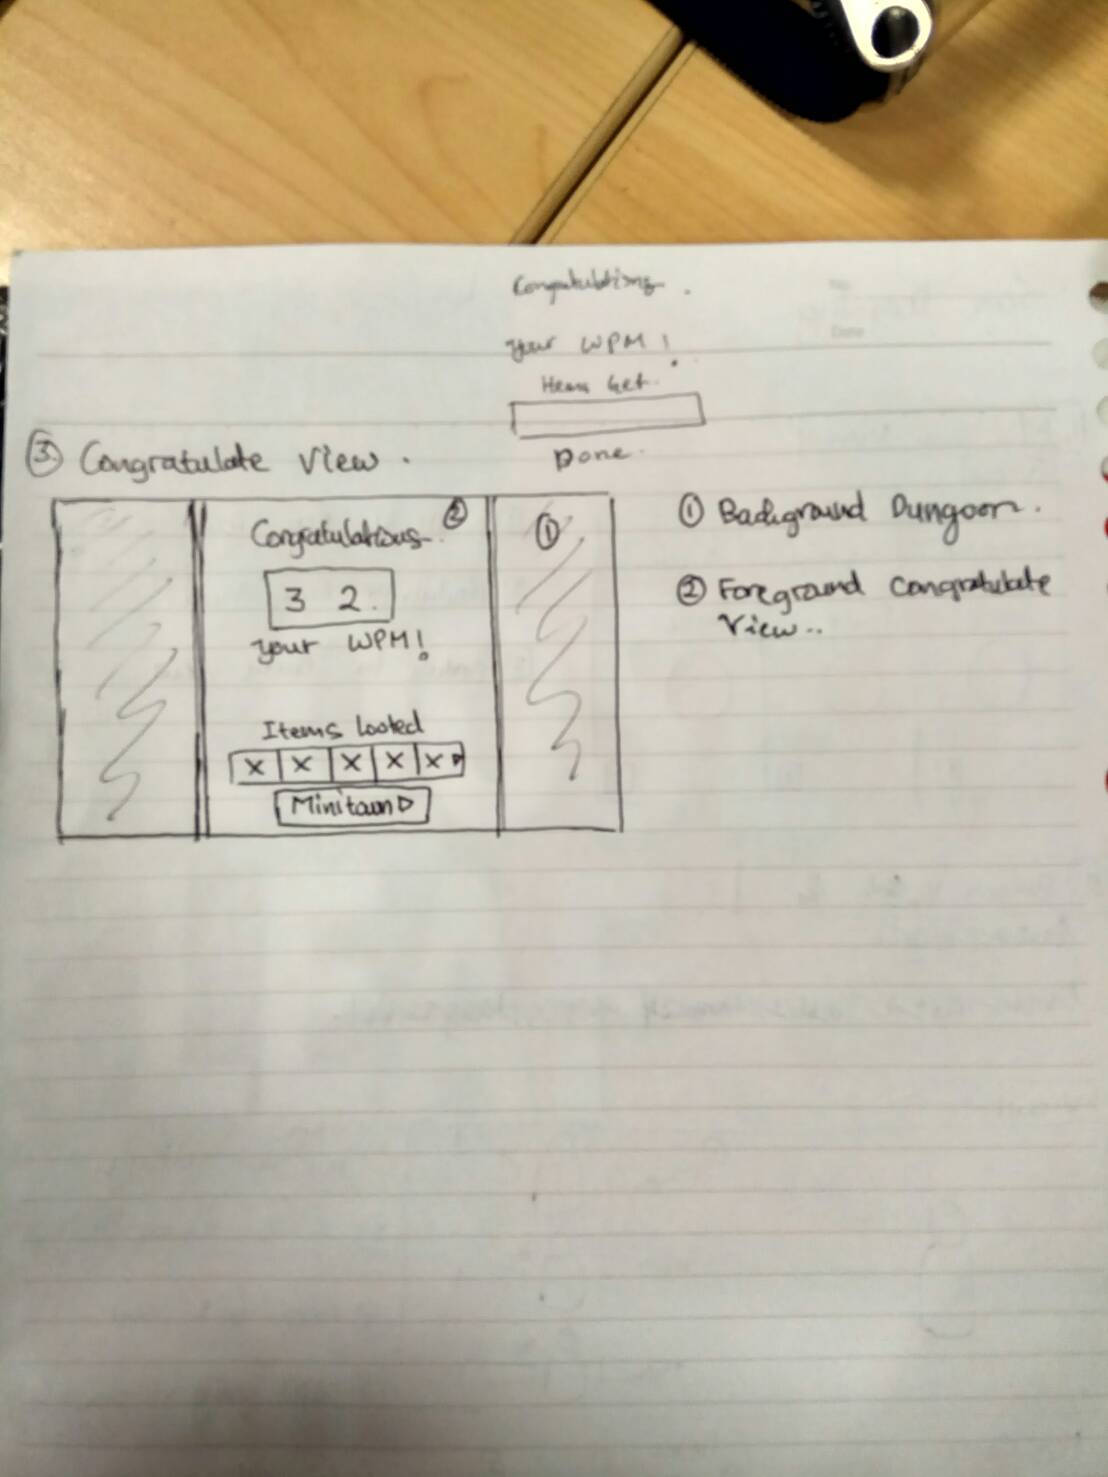 Congratulations.
your WPM!
Items Get.
Done.
③ Congratulate View.
Congratulations. ②
3 2.
your WPM!
Items looted
X X X X X
Minitown ▷
①
① Background Dungoon.
② Foreground Congratulate
View..